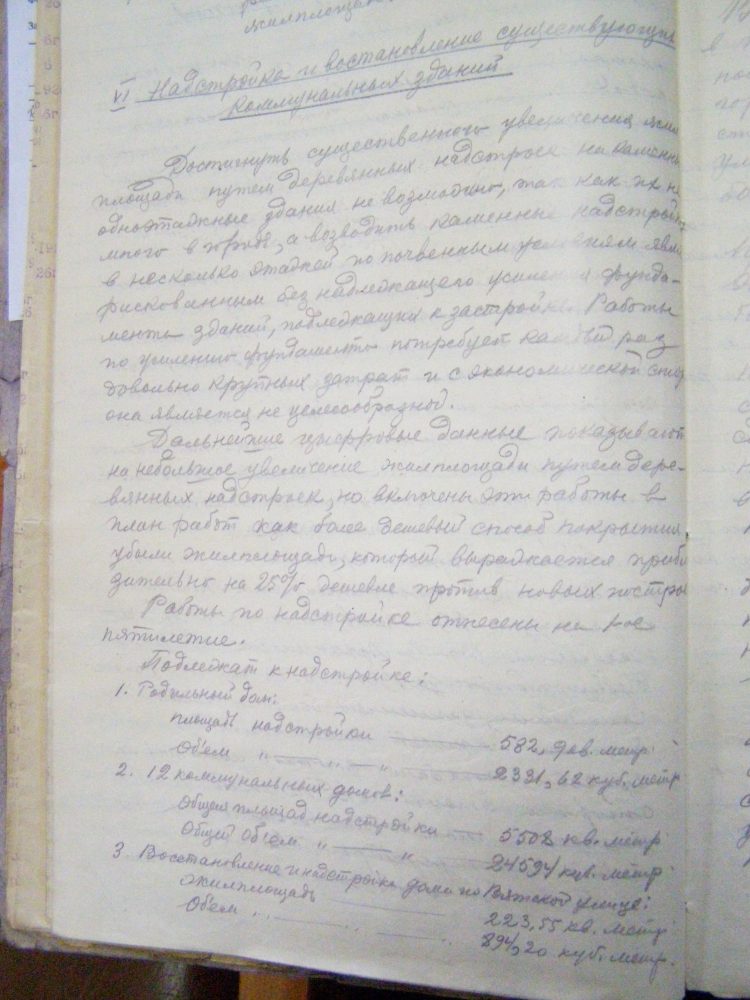 жилплощади
VI Надстройка и востановление существующих
коммунальных зданий
Достигнуть существенного увеличения жил
площади путем деревянных надстроек на каменн
одноэтажные здания не возможно, так как их не
много в городе, а возводить каменные надстройк
в несколько этажей по почвенным условиям явл
рискованным без надлежащего усилен я фунда-
мента зданий, подлежащих к застройке. Работы
по усилению фундамента потребует каждый раз
довольно крупных затрат и с экономической стор
она является не целесообразной.
Дальнейшие цыфровые данные показывают
на небольшое увеличение жилплощади путем дере-
вянных надстроек, но включены эти работы в
план работ как более дешевый способ покрытия
убыли жилплощади, который выражается прибл
зительно на 25% дешевле против новых постро
Работы по надстройке отнесены на 1-ое
пятилетие.
Подлежат к надстройке:
1. Родильный дом:
площадь надстройки 582,9 кв. метр
Об'ем " — " 2331,62 куб. метр
2. 12 коммунальных домов:
Общая площад надстройки 5508 кв. метр
Общий об'ем " — " 24594 куб. метр
3. Восстановление и надстройка дома по Вятской улице:
жилплощадь 223,55 кв. метр
Об'ем 894,20 куб. метр.